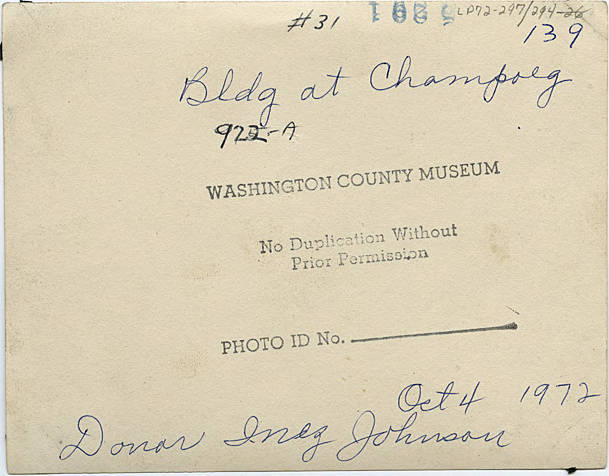 #31
LP72-297/294-26
139
Bldg at Champoeg
922-A
WASHINGTON COUNTY MUSEUM
No Duplication Without
Prior Permission
PHOTO ID No.
Oct 4 1972
Donor Inez Johnson